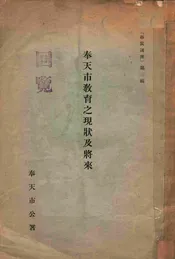 奉天市教育之現狀及將來
奉天市公署
回覽